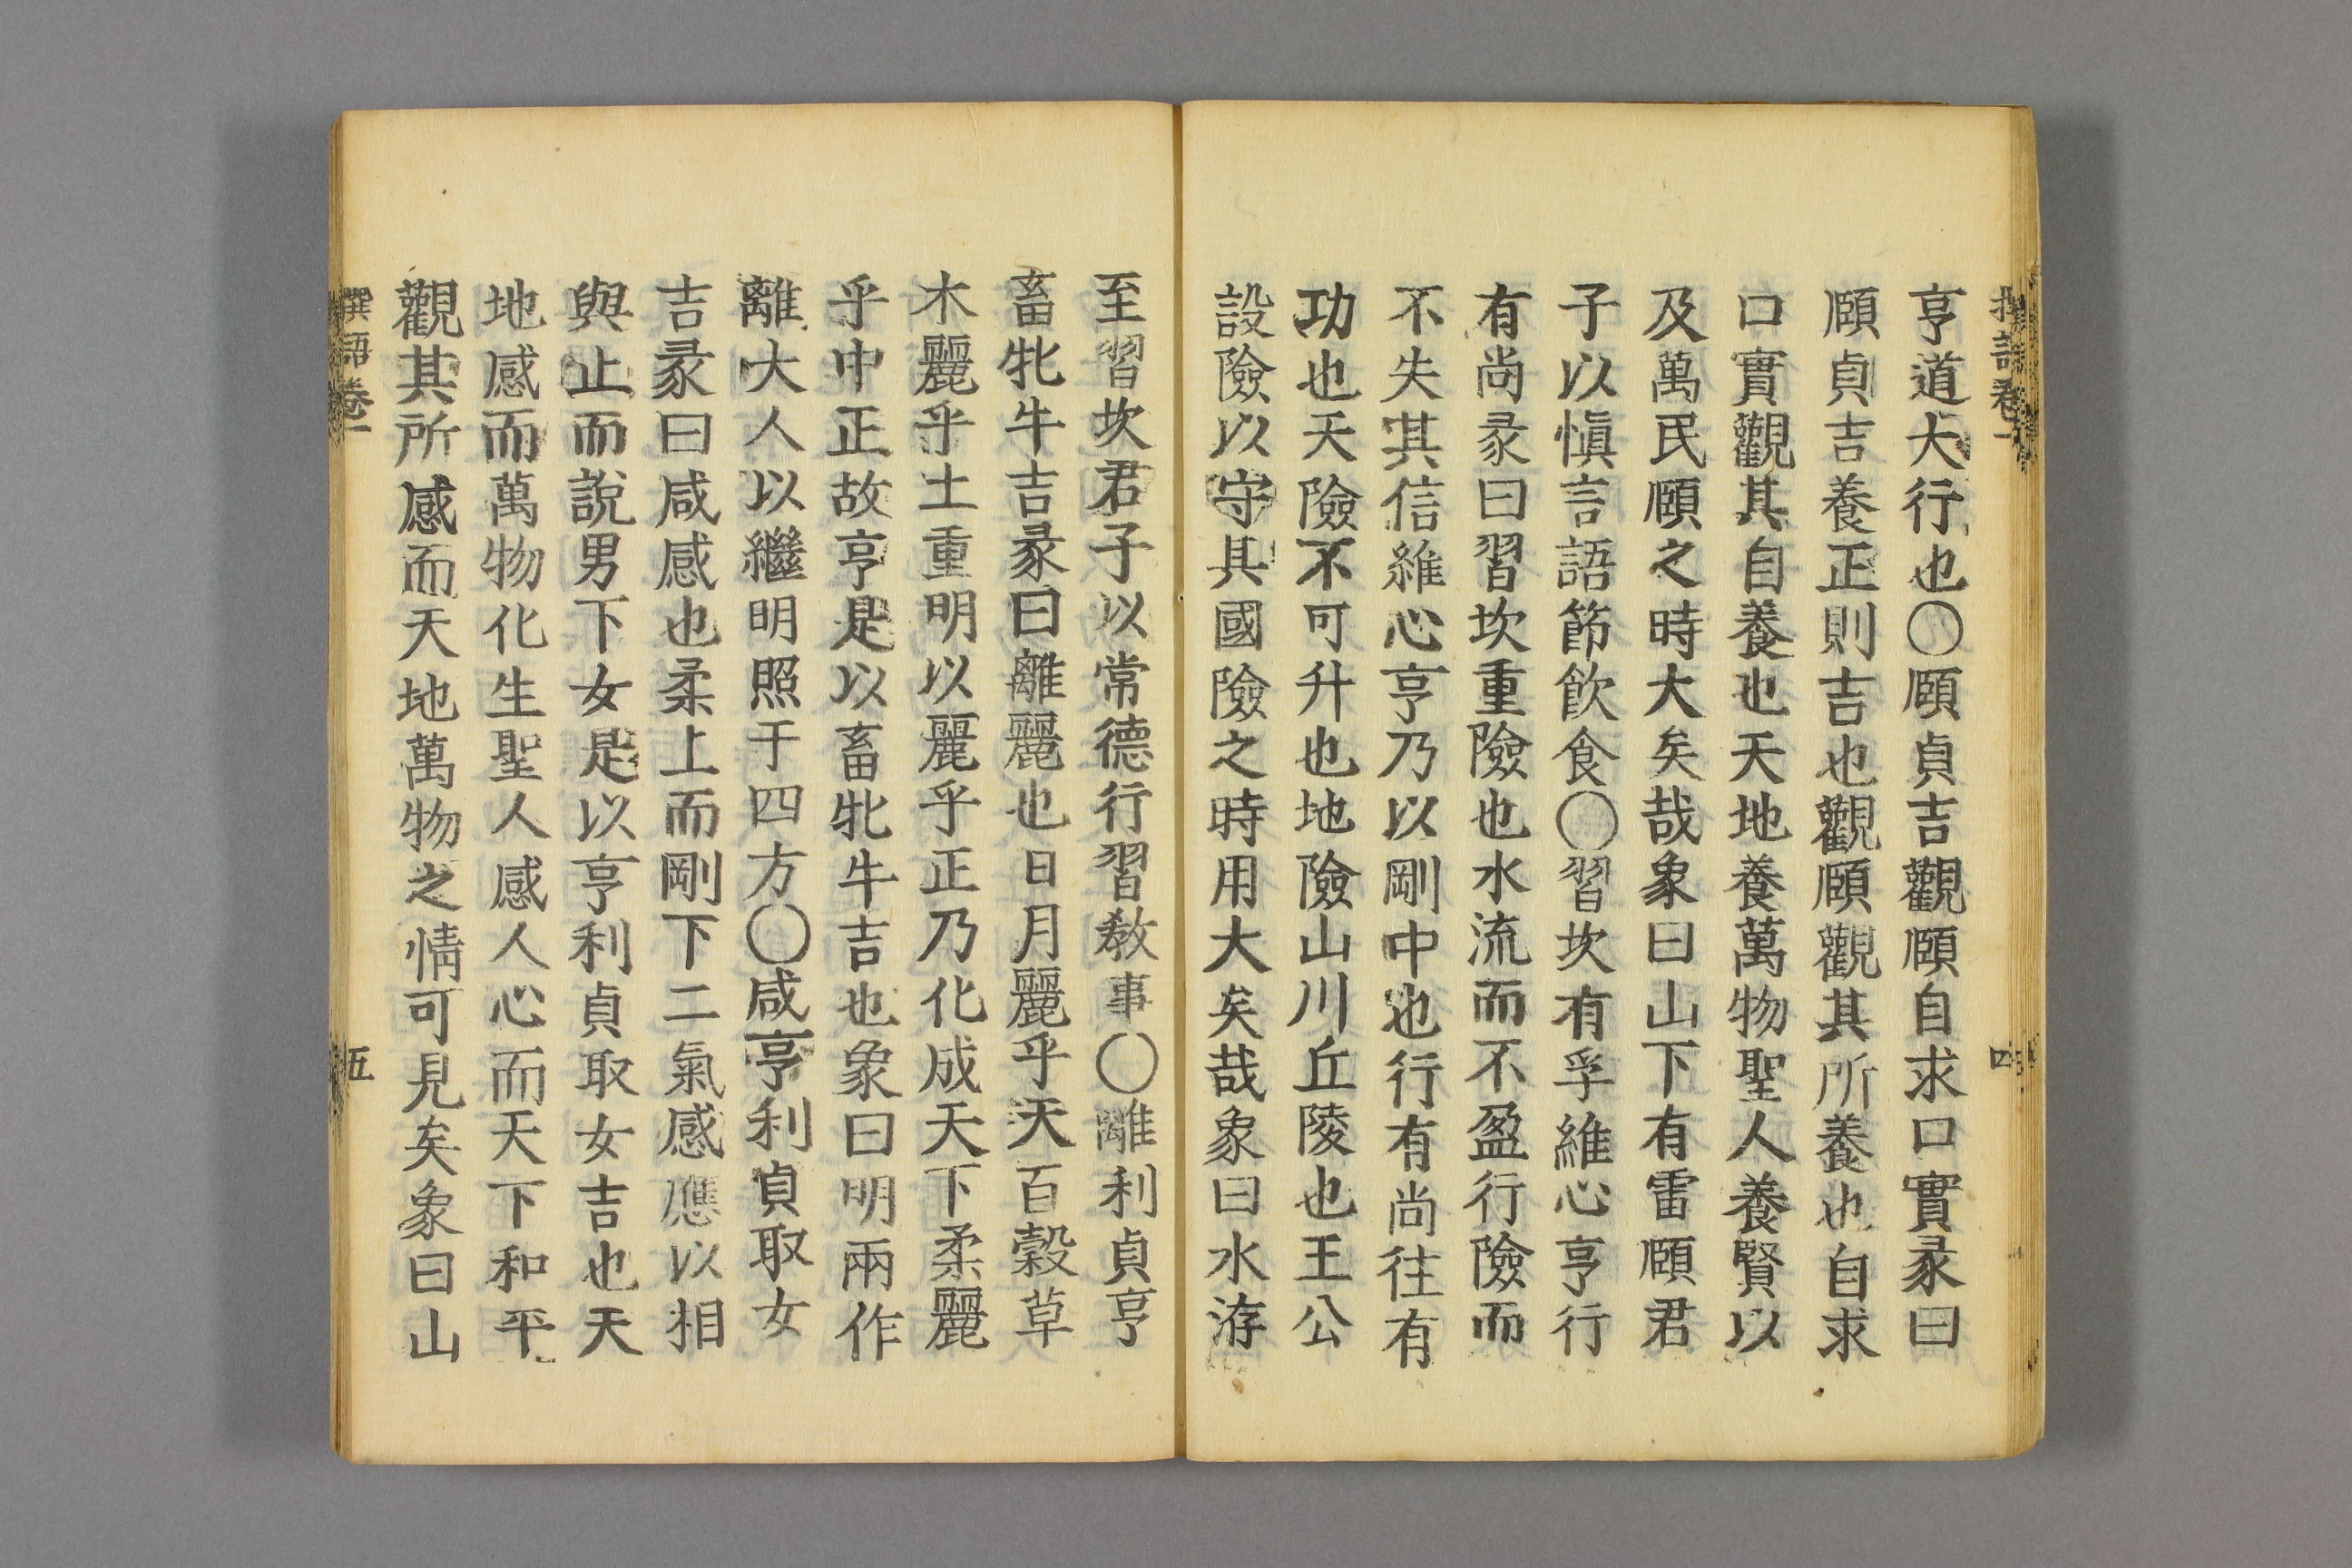 撰語卷一
四
亨道大行也〇頤貞吉觀頤自求口實彖曰
頤貞吉養正則吉也觀頤觀其所養也自求
口實觀其自養也天地養萬物聖人養賢以
及萬民頤之時大矣哉象曰山下有雷頤君
子以愼言語節飮食〇習坎有孚維心亨行
有尚彖曰習坎重險也水流而不盈行險而
不失其信維心亨乃以剛中也行有尚往有
功也天險不可升也地險山川丘陵也王公
設險以守其國險之時用大矣哉象曰水洊
至習坎君子以常德行習敎事〇離利貞亨
畜牝牛吉彖曰離麗也日月麗乎天百穀草
木麗乎土重明以麗乎正乃化成天下柔麗
乎中正故亨是以畜牝牛吉也象曰明兩作
離大人以繼明照于四方〇咸亨利貞取女
吉彖曰咸感也柔上而剛下二氣感應以相
與止而說男下女是以亨利貞取女吉也天
地感而萬物化生聖人感人心而天下和平
觀其所感而天地萬物之情可見矣象曰山
撰語卷一
五